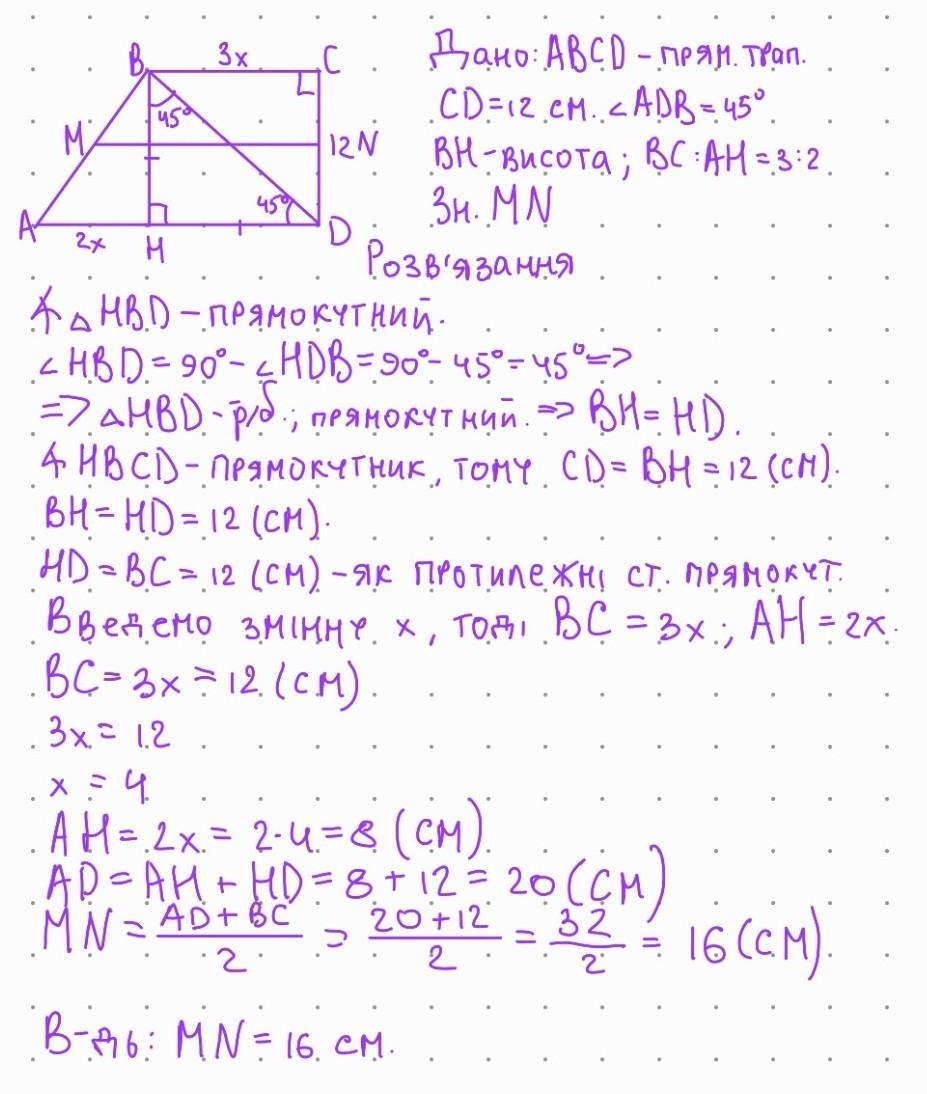 B 3x C
45°
M 12 N
45°
A 2x H D
Дано: ABCD - прям. трап.
CD = 12 см. ∠ADB = 45°
BH - висота ; BC : AH = 3 : 2
Зн. MN
Розв'язання
∢ △HBD - прямокутний.
∠HBD = 90° - ∠HDB = 90° - 45° = 45° =>
=> △HBD - р/б. ; прямокутний. => BH = HD.
∢ HBCD - прямокутник, тому CD = BH = 12 (см).
BH = HD = 12 (см).
HD = BC = 12 (см) - як протилежні ст. прямокут.
Введемо змінну x, тоді BC = 3x ; AH = 2x.
BC = 3x = 12 (см)
3x = 12
x = 4
AH = 2x = 2·4 = 8 (см)
AD = AH + HD = 8 + 12 = 20 (см)
MN = (AD + BC)/2 = (20 + 12)/2 = 32/2 = 16 (см)
В-дь: MN = 16 см.